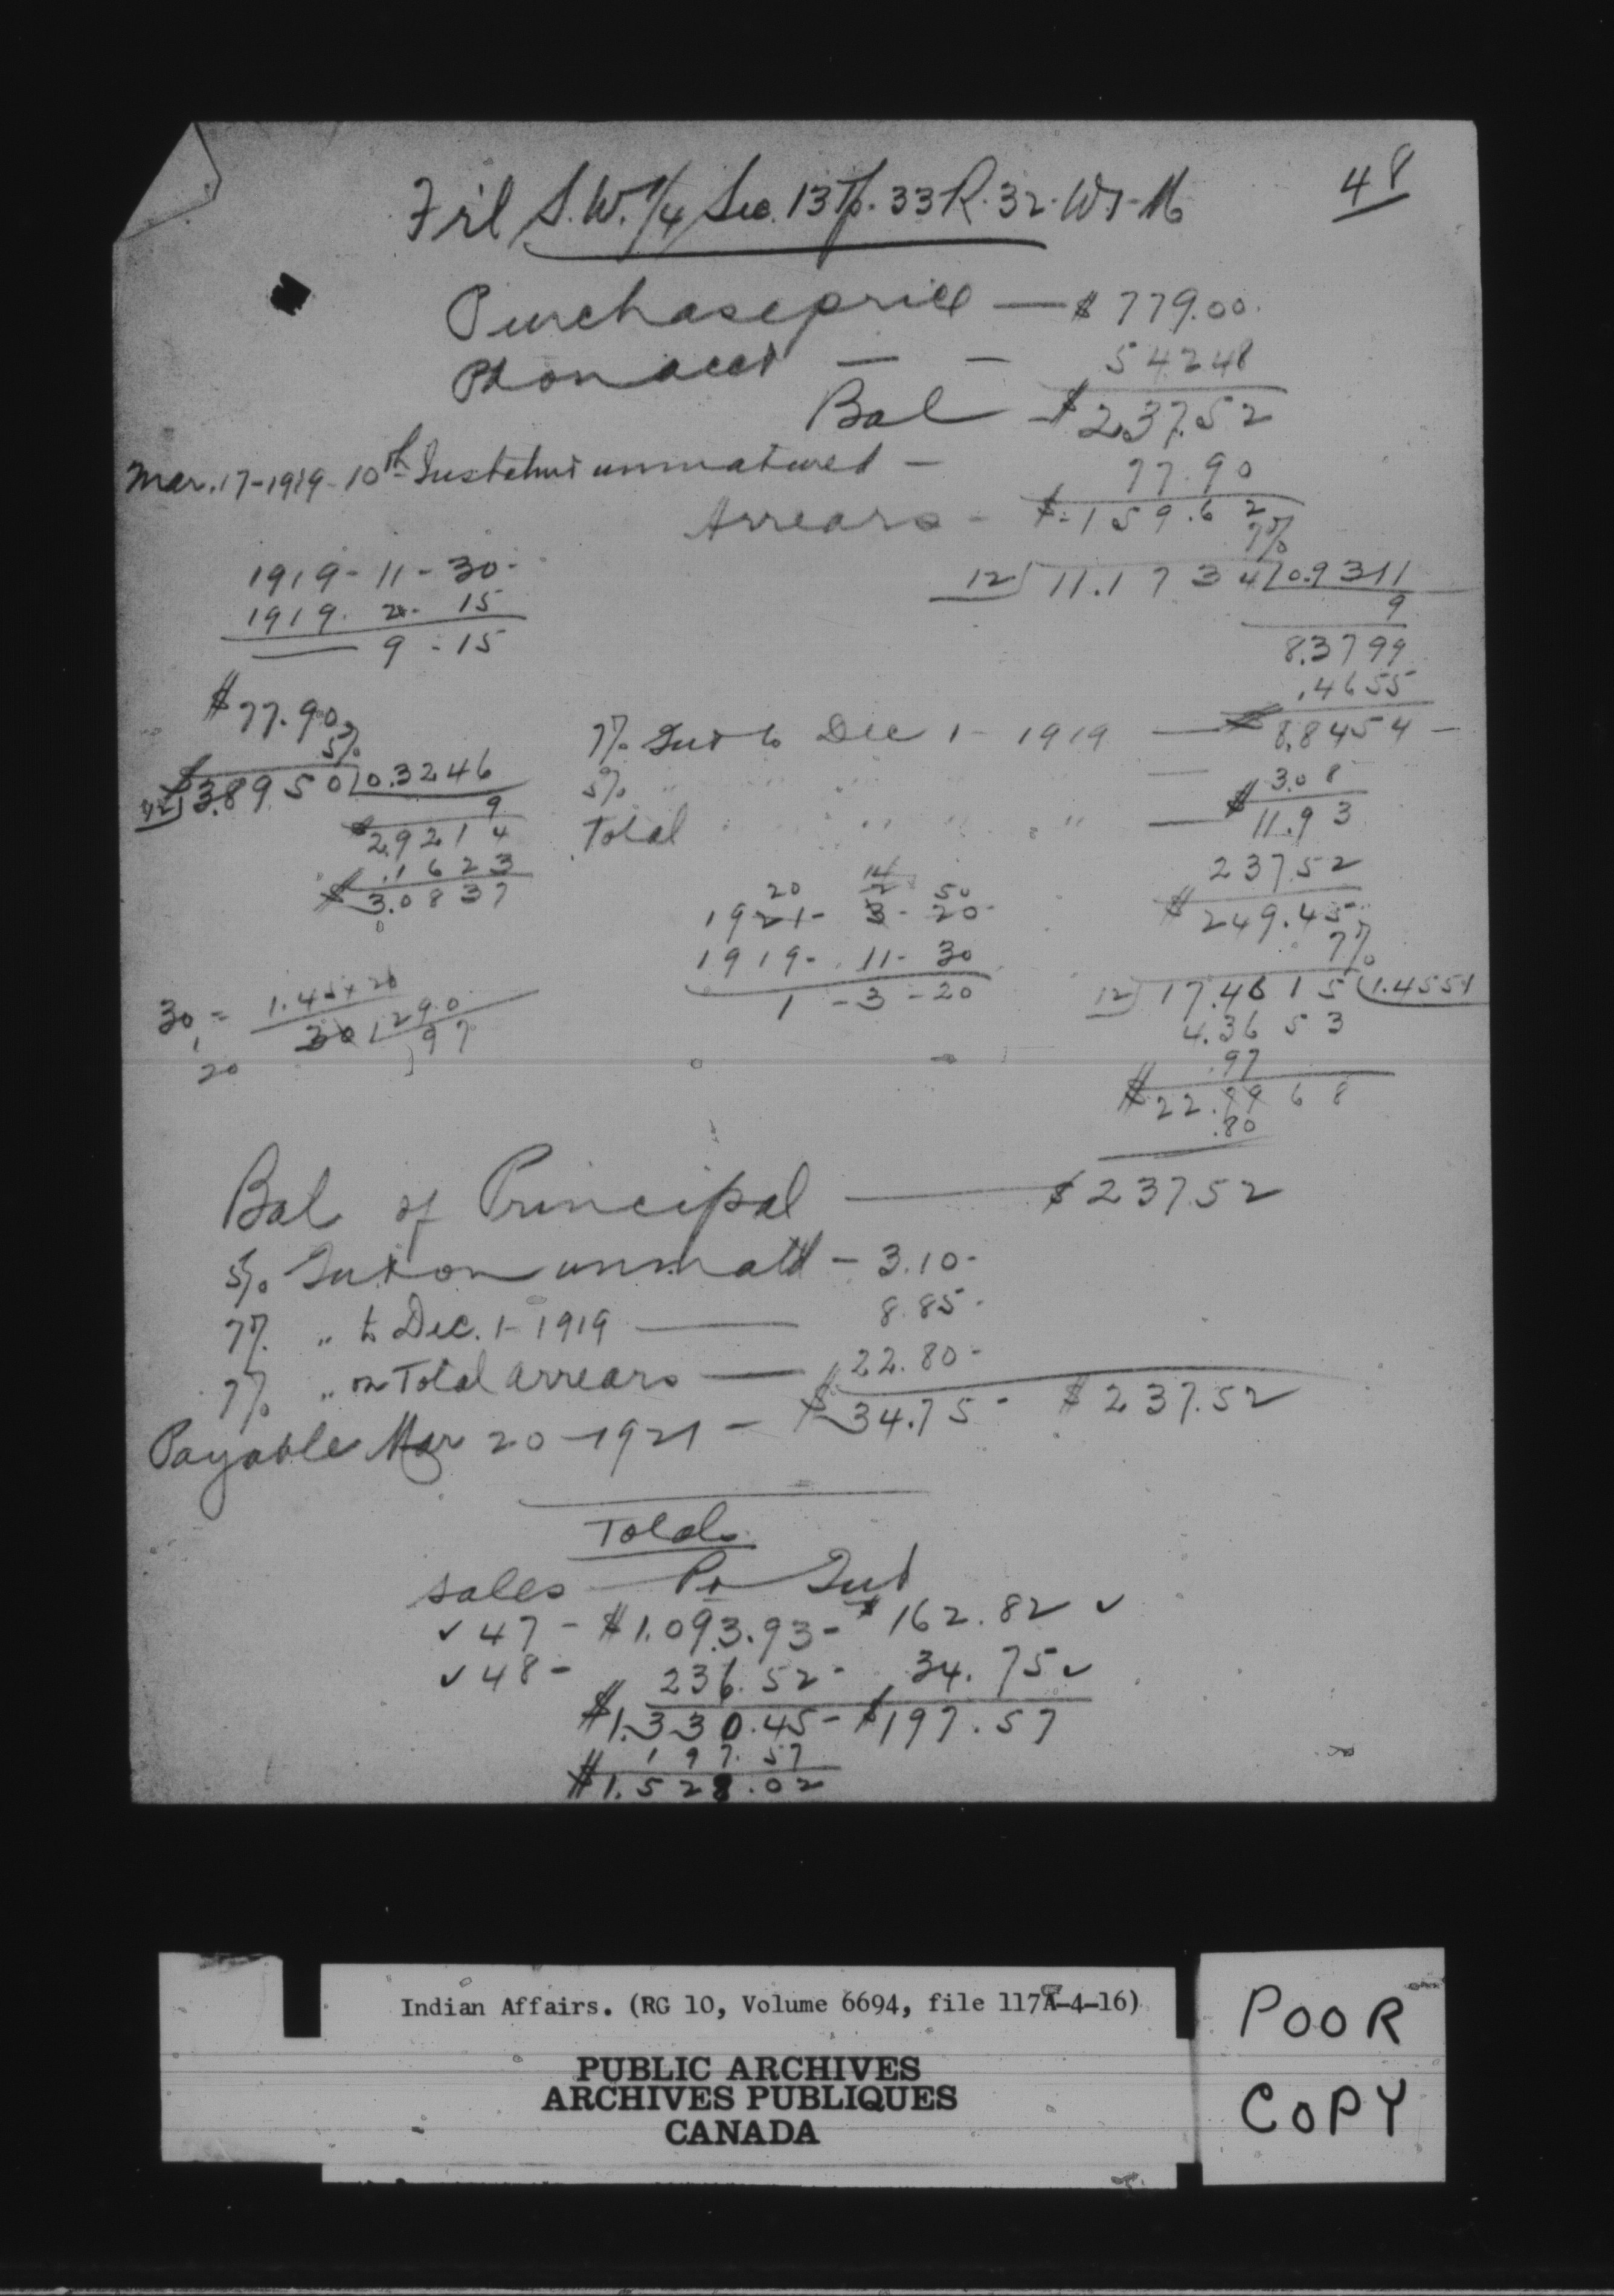 48
Fr'l S.W. 1/4 Sec. 13 Tp. 33 R. 32. W1-M
Purchase price — $779.00.
Pd on acct — — 542 48
Bal $237.52
Mar. 17-1919 - 10th Instalmt unmatured — 77.90
Arrears - $-159.62
7%
12) 11.1734 (0.9311
9
8.3799
.4655
$8.8454 —
1919 - 11 - 30 -
1919. 2 - 15
9 - 15
$77.90
5%
12) $3.8950 (0.3246
9
$2.9214
.1623
$3.0837
7% Int to Dec 1 - 1919 —
5% " " " " — $3.08
Total " " " " — $11.93
237.52
$249.45
7%
12) 17.4615 (1.4551
4.3653
.97
$22.7968
.80
20 14 2 50
1921 - 3 - 20 -
1919 - 11 - 30
1 - 3 - 20
30 = 1.45 x 20
20 30 ) 29.0
97
Bal of Principal — $237.52
5% Int on unmat'd — 3.10 -
7% " to Dec. 1 - 1919 — 8.85 -
7% " on Total arrears — 22.80 -
Payable Mar 20 - 1921 — $34.75 - $237.52
Totals
sales — Pr Int
✓ 47 - $1.093.93 - $162.82 ✓
✓ 48 - 236.52 - 34.75 ✓
$1.330.45 - $197.57
197.57
$1.528.02
Indian Affairs. (RG 10, Volume 6694, file 117A-4-16)
PUBLIC ARCHIVES
ARCHIVES PUBLIQUES
CANADA
POOR
COPY